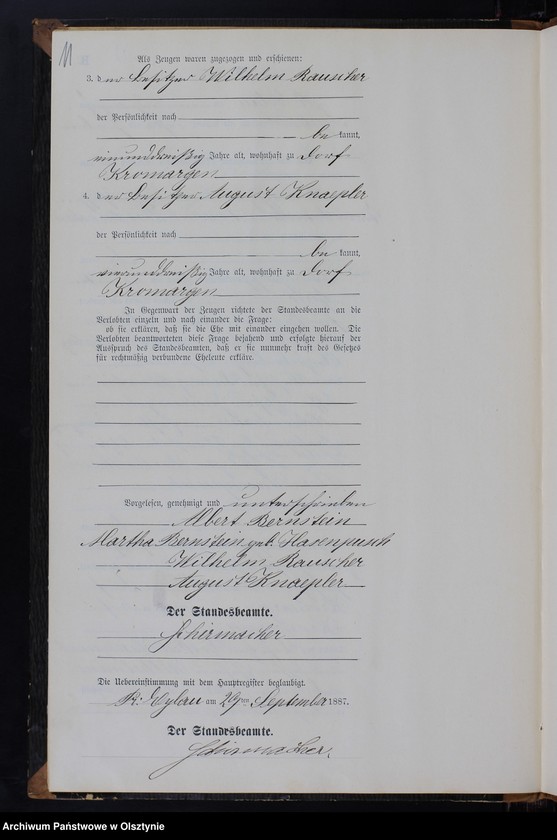 11
Als Zeugen waren zugezogen und erschienen:
3. der Besitzer Wilhelm Rauscher
der Persönlichkeit nach
bekannt,
einunddreißig Jahre alt, wohnhaft zu Dorf
Kromargen
4. der Besitzer August Knaepler
der Persönlichkeit nach
bekannt,
vierunddreißig Jahre alt, wohnhaft zu Dorf
Kromargen
In Gegenwart der Zeugen richtete der Standesbeamte an die
Verlobten einzeln und nach einander die Frage:
ob sie erklären, daß sie die Ehe mit einander eingehen wollen. Die
Verlobten beantworteten diese Frage bejahend und erfolgte hierauf der
Ausspruch des Standesbeamten, daß er sie nunmehr kraft des Gesetzes
für rechtmäßig verbundene Eheleute erkläre.
Vorgelesen, genehmigt und unterschrieben
Albert Bernstein
Martha Bernstein geb. Hasenpusch
Wilhelm Rauscher
August Knaepler
Der Standesbeamte.
Schirmacher
Die Uebereinstimmung mit dem Hauptregister beglaubigt.
Pr: Eylau am 29ten September 1887.
Der Standesbeamte.
Schirmacher.
Archiwum Państwowe w Olsztynie